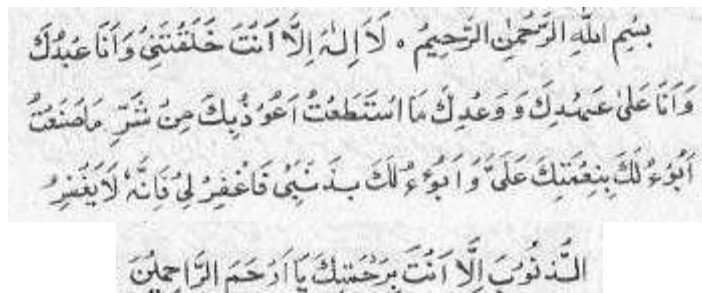 بِسْمِ اللّٰهِ الرَّحْمٰنِ الرَّحِيْمِ ○ لَا اِلٰهَ اِلَّا اَنْتَ خَلَقْتَنِيْ وَاَنَا عَبْدُكَ
وَاَنَا عَلٰى عَهْدِكَ وَ وَعْدِكَ مَا اسْتَطَعْتُ اَعُوْذُ بِكَ مِنْ شَرِّ مَا صَنَعْتُ
اَبُوْءُ لَكَ بِنِعْمَتِكَ عَلَيَّ وَ اَبُوْءُ لَكَ بِذَنْبِيْ فَاغْفِرْ لِيْ فَاِنَّهٗ لَا يَغْفِرُ
الذُّنُوْبَ اِلَّا اَنْتَ بِرَحْمَتِكَ يَا اَرْحَمَ الرَّاحِمِيْنَ